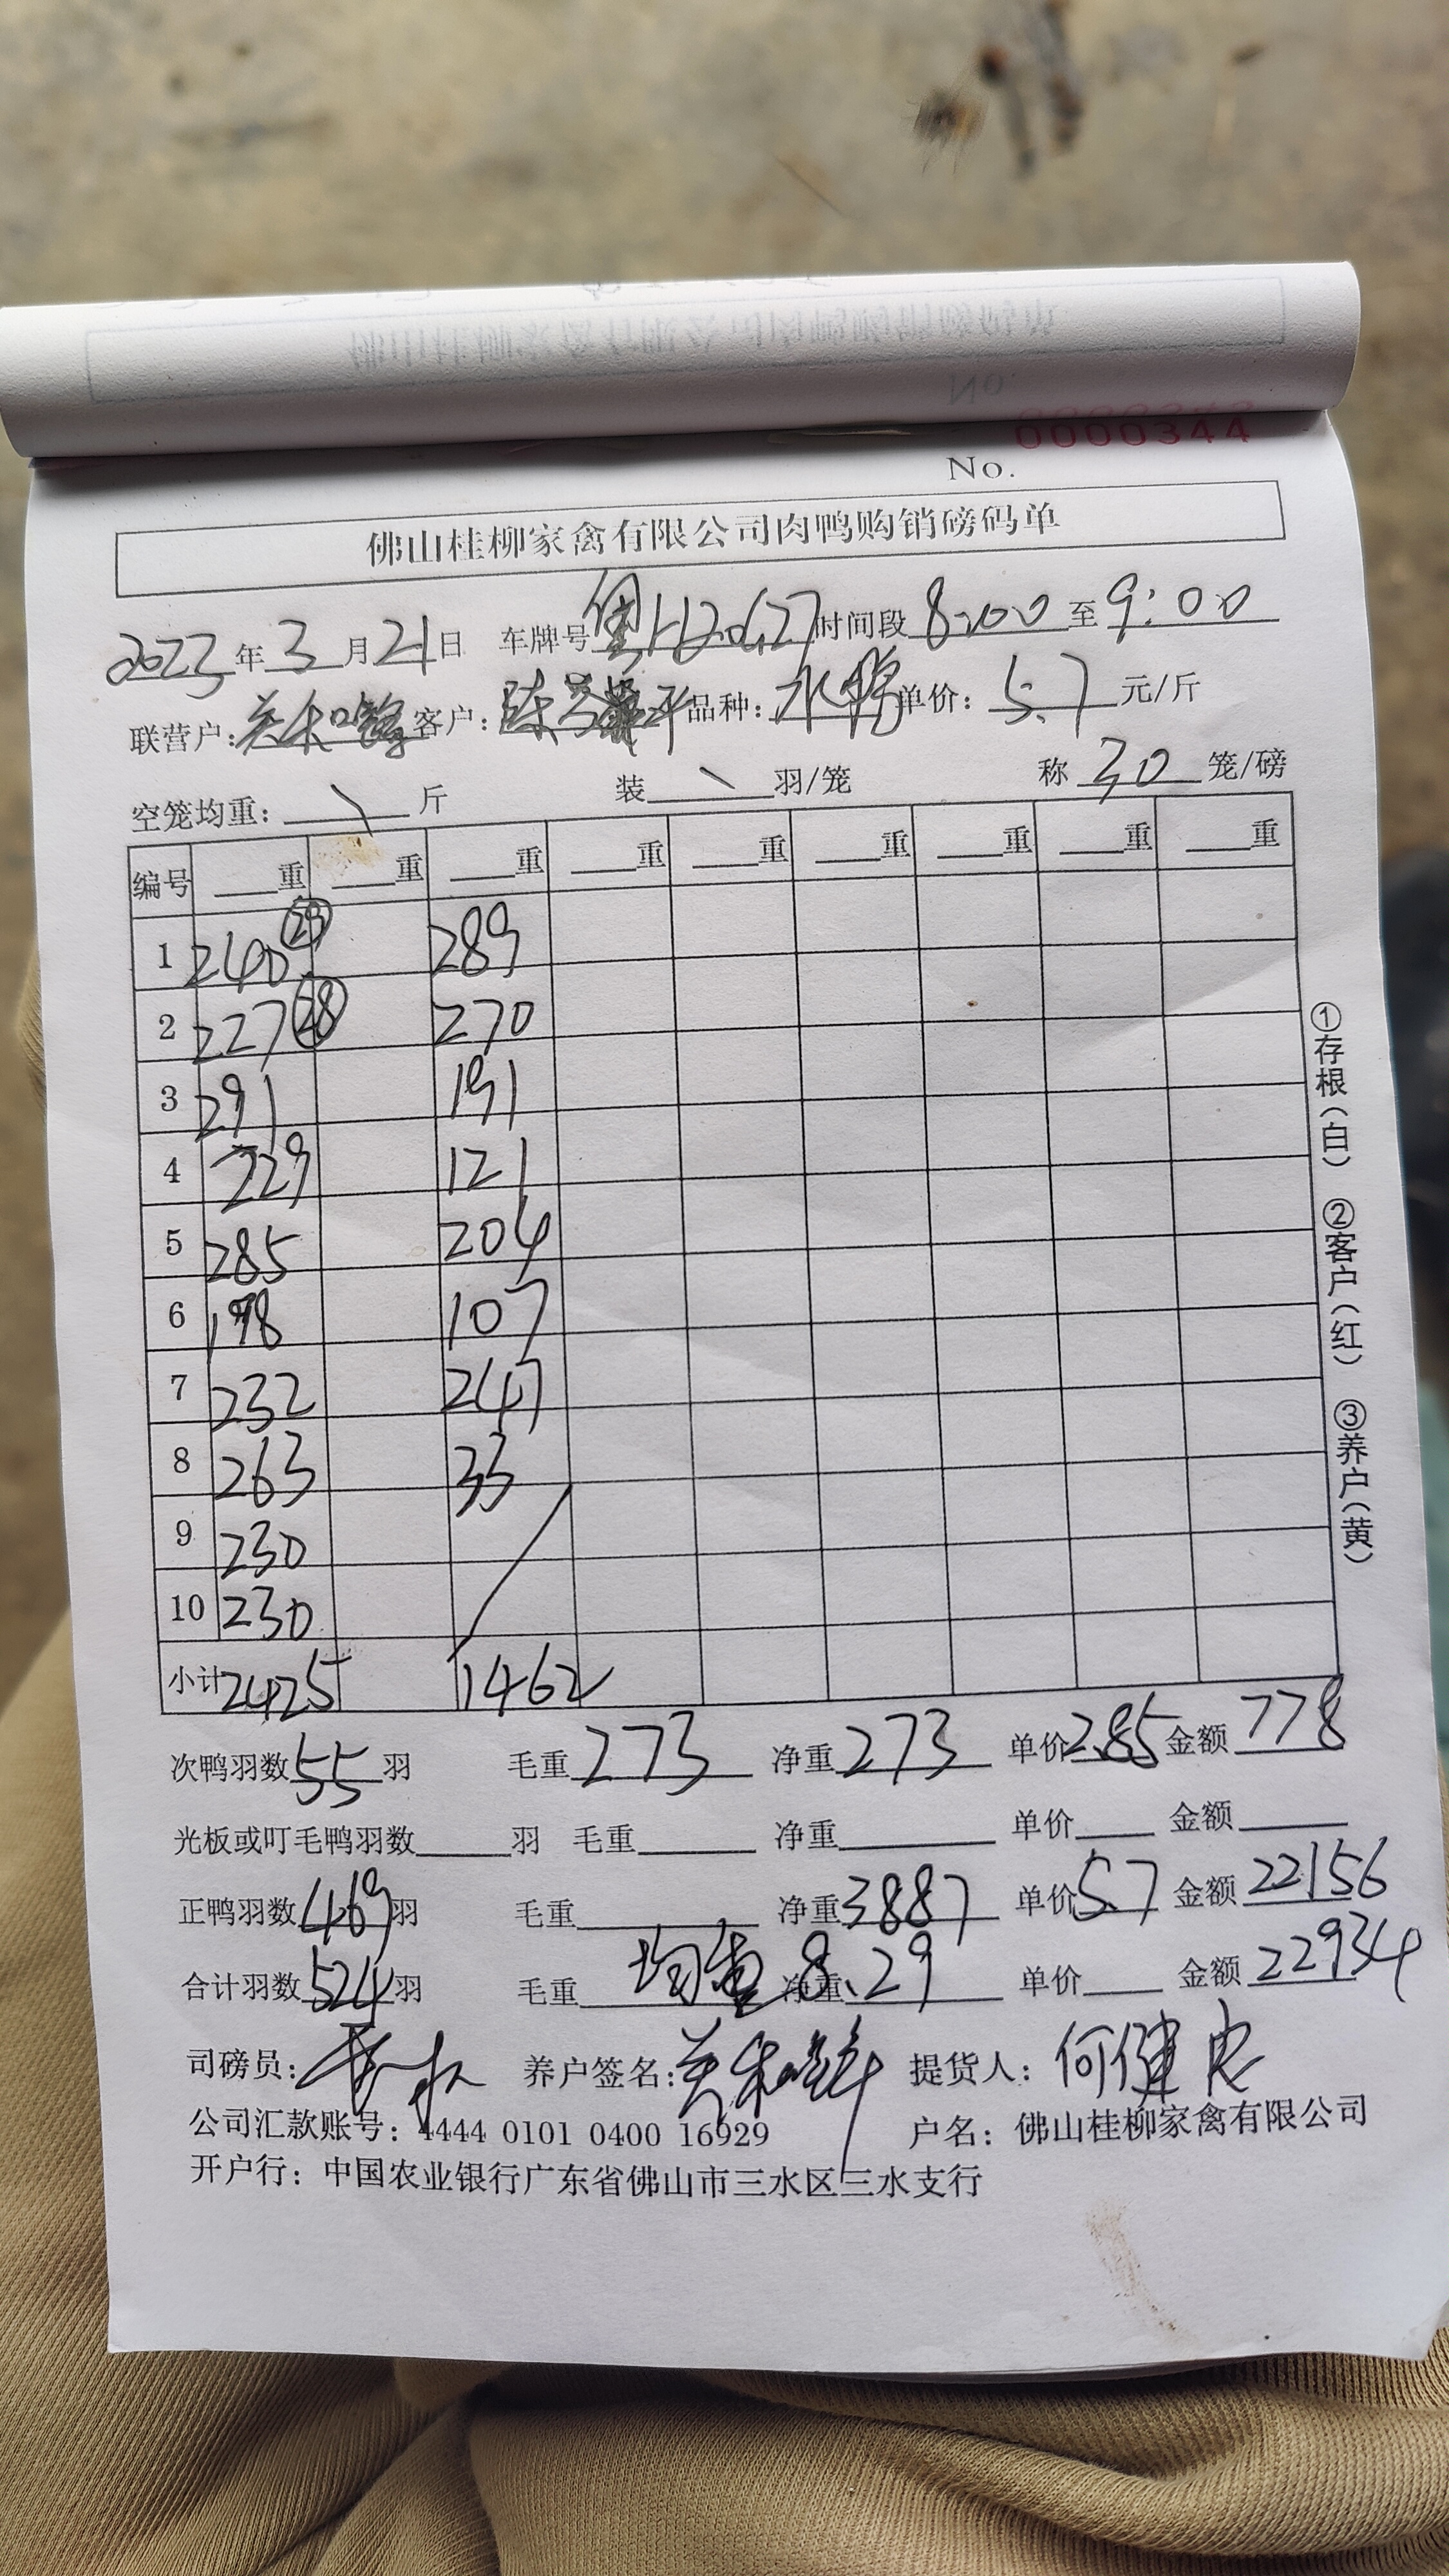 0000344
No.
佛山桂柳家禽有限公司肉鸭购销磅码单
2023年3月21日 车牌号 时间段8:00至9:00
联营户: 客户: 品种:水鸭 单价: 5.7 元/斤
空笼均重: \ 斤 装 \ 羽/笼 称 30 笼/磅
编号 重 重 重 重 重 重 重 重 重
1 240 29 289
2 227 28 270
3 291 191
4 229 121
5 285 204
6 198 107
7 232 247
8 263 33
9 230
10 230
小计 2425 1462
次鸭羽数 55 羽 毛重 273 净重 273 单价 2.85 金额 778
光板或叮毛鸭羽数 羽 毛重 净重 单价 金额
正鸭羽数 469 羽 毛重 净重 3887 单价 5.7 金额 22156
合计羽数 524 羽 毛重 均重 净重 8.29 单价 金额 22934
司磅员: 养户签名: 提货人: 何健忠
公司汇款账号: 4444 0101 0400 16929 户名: 佛山桂柳家禽有限公司
开户行: 中国农业银行广东省佛山市三水区三水支行
①存根(白) ②客户(红) ③养户(黄)